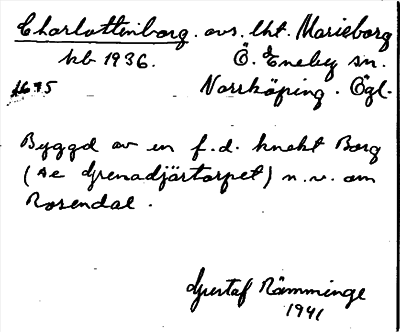 Charlottenborg. avs. lht. Marieborg
kb 1936. Ö. Eneby sn.
Norrköping. Ögl.
Byggd av en f.d. knekt Borg
(se Grenadjärtorpet) n.v. om
Rosendal.
Gustaf Rämminge
1941